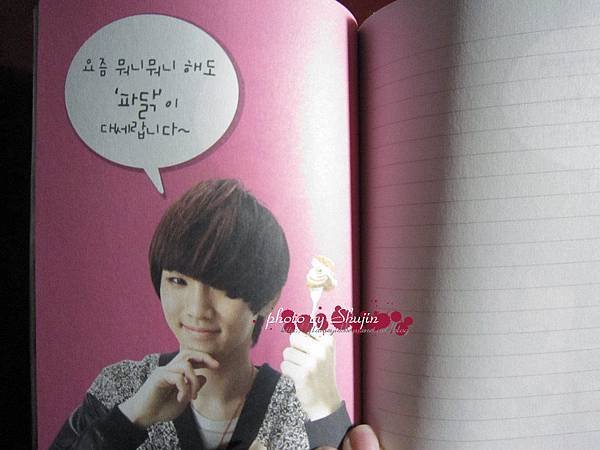 요즘 뭐니뭐니 해도
'파닭'이
대세랍니다~
photo by Shujin